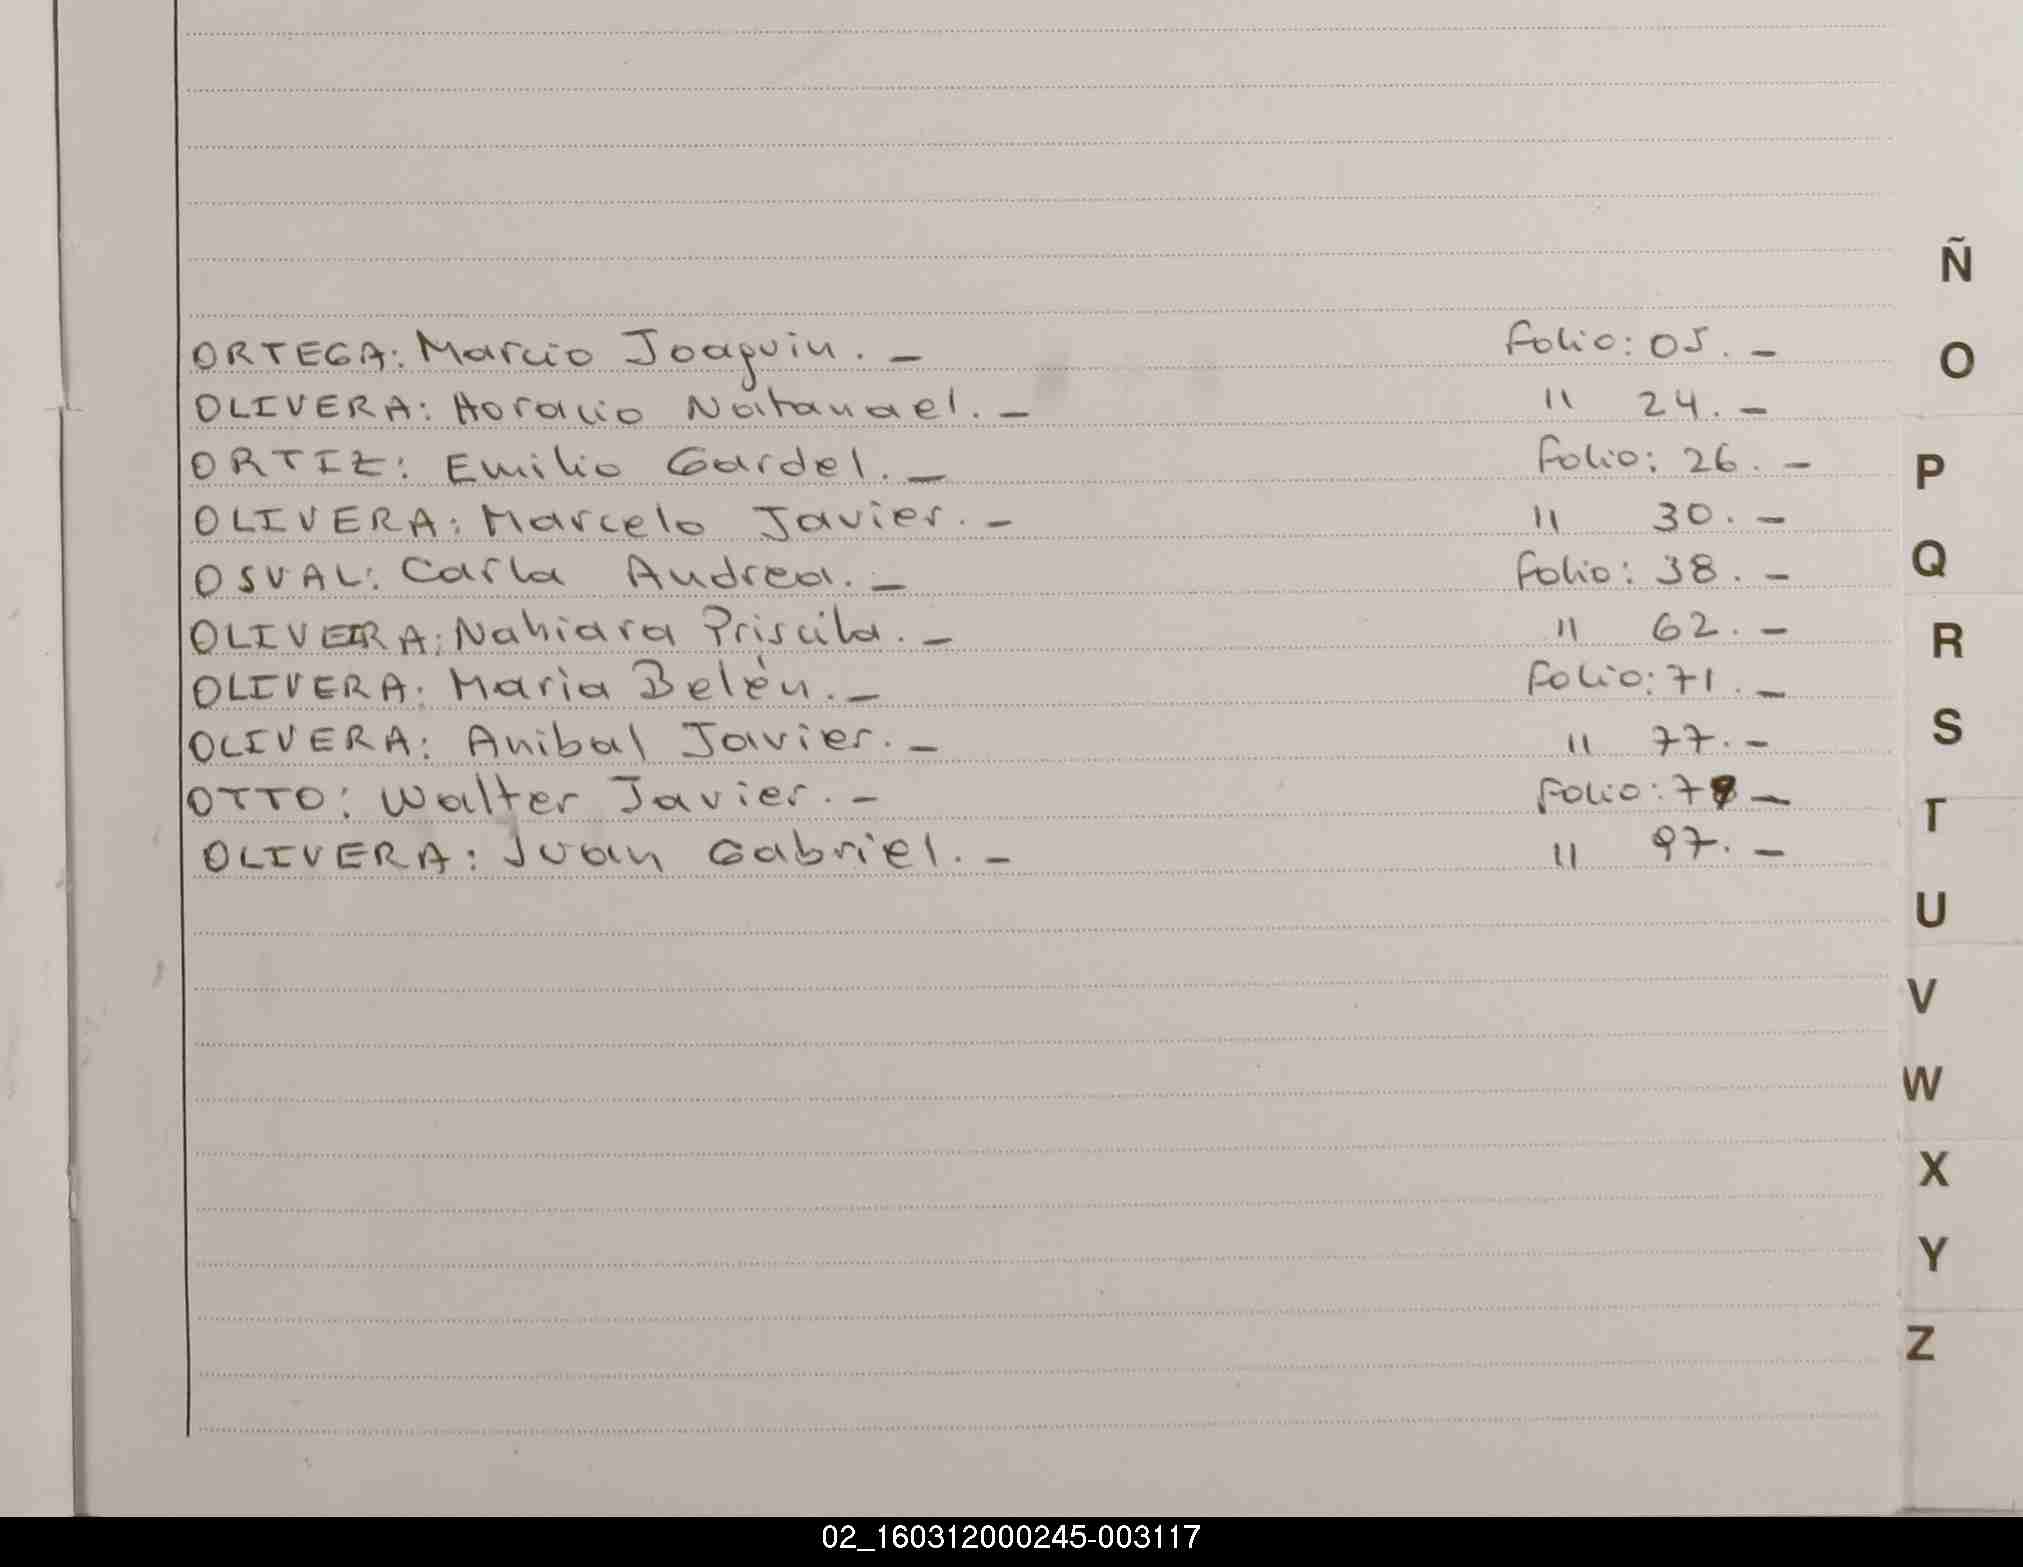 ORTEGA: Marcio Joaquin. — Folio: 05. —
OLIVERA: Horacio Natanael. — " 24. —
ORTIZ: Emilio Gardel. — Folio: 26. —
OLIVERA: Marcelo Javier. — " 30. —
OSVAL: Carla Andrea. — Folio: 38. —
OLIVERA: Nahiara Priscila. — " 62. —
OLIVERA: Maria Belén. — Folio: 71. —
OLIVERA: Anibal Javier. — " 77. —
OTTO: Walter Javier. — Folio: —
OLIVERA: Juan Gabriel. — " 97. —
Ñ
O
P
Q
R
S
T
U
V
W
X
Y
Z
02_160312000245-003117